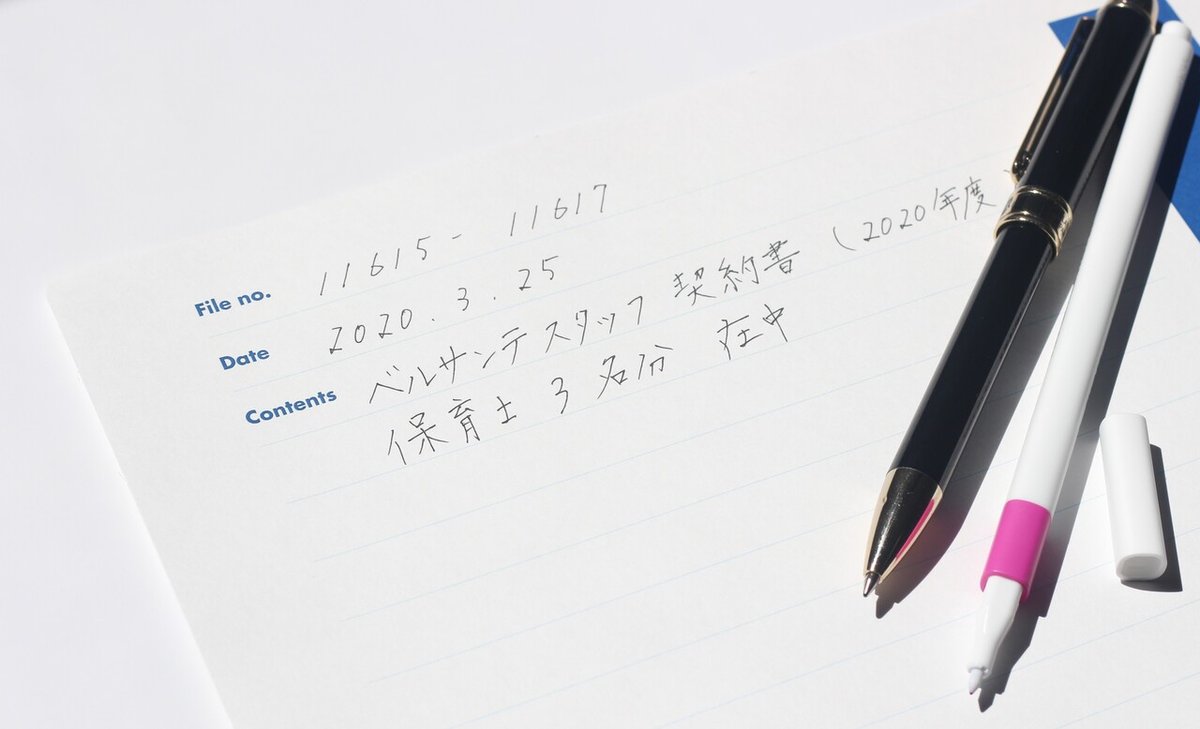 File no. 11615 - 11617
Date 2020. 3. 25
Contents ベルサンテスタッフ 契約書 (2020年度)
保育士 3名分 在中